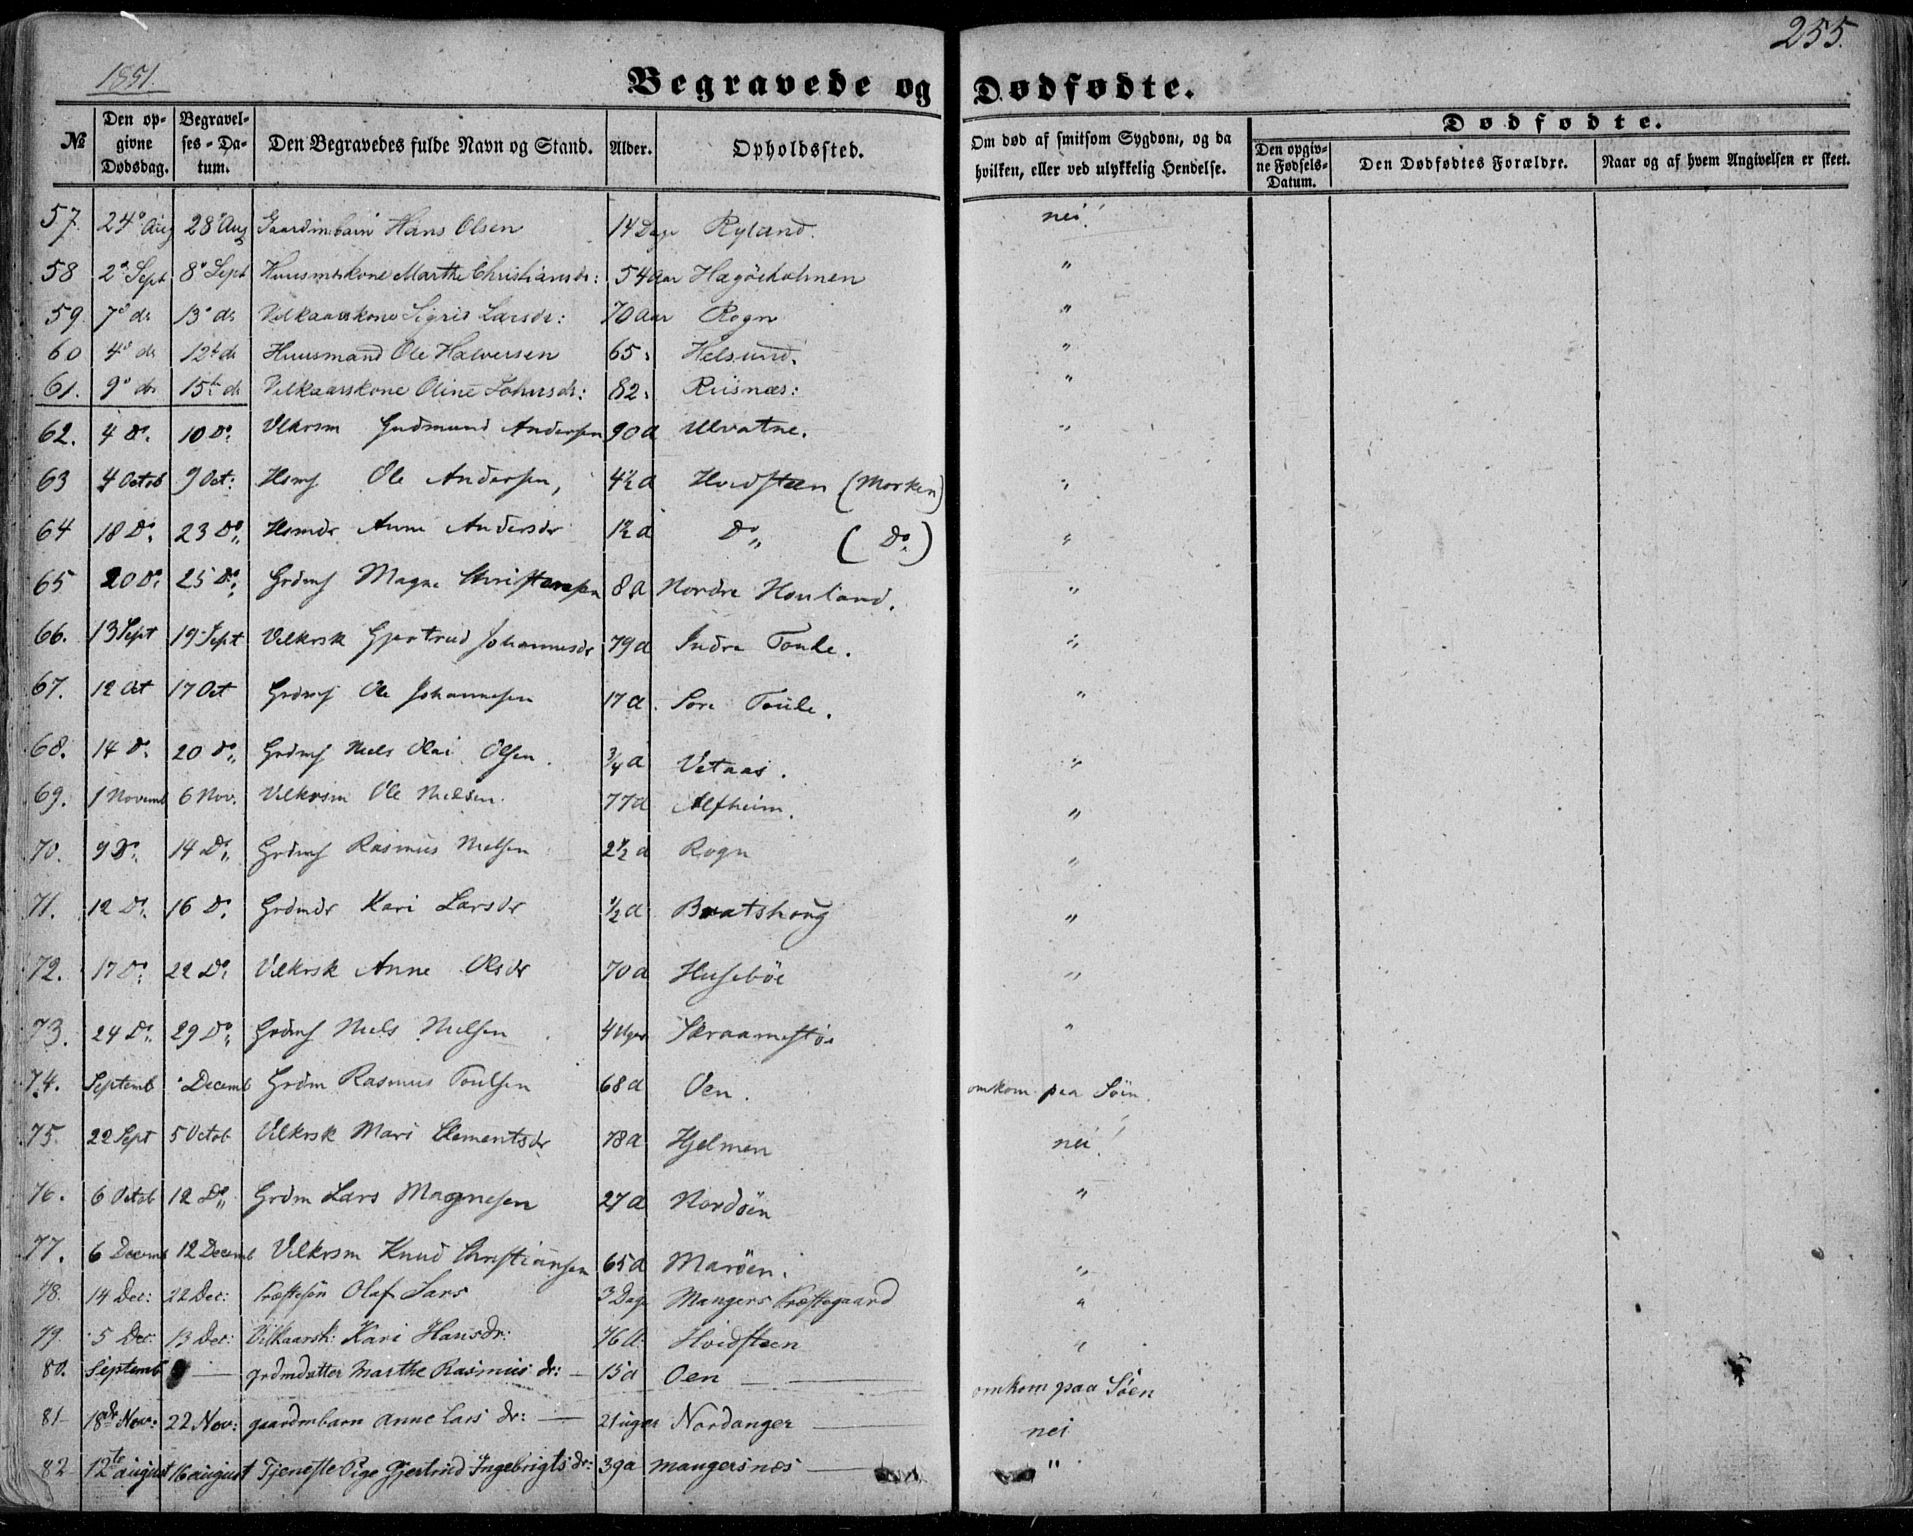 255.
1851.
Begravede og Dødfødte.
№ | Den opgivne Dødsdag. | Begravelses-Datum. | Den Begravedes fulde Navn og Stand. | Alder. | Opholdssted. | Om død af smitsom Sygdom, og da hvilken, eller ved ulykkelig Hendelse. | Dødfødte. | Den opgivne Fødsels-Datum. | Den Dødfødtes Forældre. | Naar og af hvem Angivelsen er skeet.
57. 24° Aug 28° Aug Gaardmbarn Hans Olsen 14 Dage Ryland. nei!
58 2° Sept 8° Sept Huusmdskone Marthe Christiansdr: 54 Aar Hagöeholmen "
59. 7° ds 13° ds Vilkaarskone Sigris Larsdr: 70 Aar Rogn "
60 4° ds 12t ds Huusmand Ole Halversen 65: Helsund. "
61. 9° ds 15t ds Vilkaarskone Oline Johnsdr: 82: Riisnæs: "
62. 4 D°. 10 D°. Vlkrsm Gudmund Andersen 90 a Ulvatne. "
63 4 Octob 9 Oct: Hsms Ole Andersen, 4½ a Hvidsteen (Morken) "
64 18 D°. 23 D°. Hsmdr Anne Andersdr 1½ a D° (D°.) "
65 20 D°. 25 D°. Grdms Magne Christensen 8 a Nordre Houland. "
66. 13 Sept 19 Sept Vilkrsk Gjertrud Johannesdr 79 a Indre Toule. "
67. 12 Oct 17 Oct Grdms Ole Johannesen 17 a. Søre Toule. "
68. 14 D°. 20 D°. Grdms Niels Olai Olsen. ¾ a Vetaas. "
69. 1 Novemb 6 Nov. Vilkrsm Ole Nielsen. 77 a Alfheim. "
70. 9 D°. 14 D°. Grdms Rasmus Nielsen 2½ a Rogn "
71. 12 D°. 16 D°. Grdmdr Kari Larsdr ½ a Bratshoug "
72. 17 D°. 22 D°. Vilkrsk Anne Olsdr 70 a Husebøe "
73. 24 D°. 29 D°. Grdms Niels Nielsen 4 Uger Skraamestø "
74. Septemb Decemb Grdm Rasmus Toulsen 68 a Oen. omkom paa Söen.
75. 22 Sept 5 Octob Vilkrsk Mari Clementsdr 78 a Hjelmen nei!
76. 6 Octob 12 D°. Grdm Lars Magnesen 27 a Nordöen "
77. 6 Decemb 12 Decemb Vilkrsm Knud Christiansen 65 a Maröen. "
78. 14 Dec: 22 Dec: Præstesön Olaf Lars 3 Dage Mangers Præstegaard "
79. 5 Dec: 13 Dec: Vilkaarsk: Kari Hansdr: 76 a. Hvidsteen "
80. Septemb — grdmdatter Marthe Rasmus dr: — 15 a Oen — omkom paa Söen
81 18de Nov: 22 Nov: gaardmbarn Anne Lars dr: — 2 uger Nordanger — nei
82 12te august 16 august Tjeneste Pige Gjertrud Ingebrigts dr: 39 a Mangersnes — "